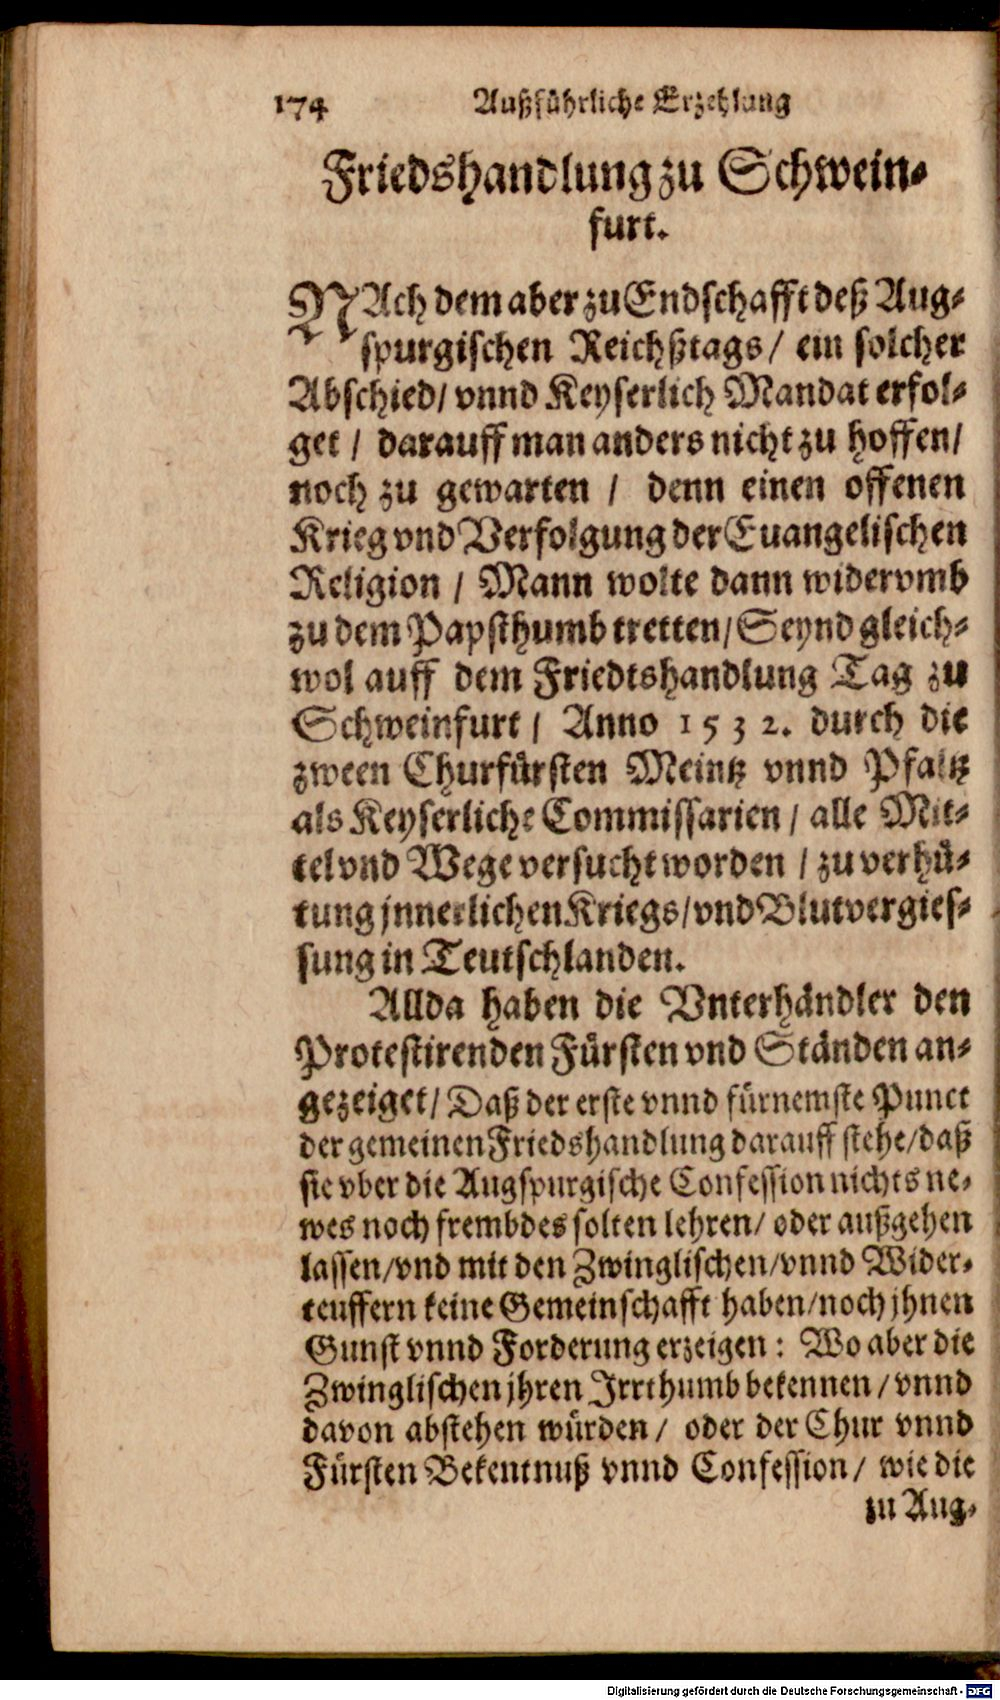 174 Außführliche Erzehlung
Friedshandlung zu Schwein-
furt.
NAch dem aber zu Endschafft deß Aug-
spurgischen Reichßtags/ ein solcher
Abschied/ vnnd Keyserlich Mandat erfol-
get / darauff man anders nicht zu hoffen/
noch zu gewarten / denn einen offenen
Krieg vnd Verfolgung der Euangelischen
Religion / Mann wolte dann widervmb
zu dem Papsthumb tretten/ Seynd gleich-
wol auff dem Friedtshandlung Tag zu
Schweinfurt / Anno 1532. durch die
zween Churfürsten Meintz vnnd Pfaltz
als Keyserliche Commissarien / alle Mit-
tel vnd Wege versucht worden / zu verhü-
tung jnnerlichen Kriegs/ vnd Blutvergies-
sung in Teutschlanden.
Allda haben die Vnterhändler den
Protestirenden Fürsten vnd Ständen an-
gezeiget/ Daß der erste vnnd fürnemste Punct
der gemeinen Friedshandlung darauff stehe/ daß
sie vber die Augspurgische Confession nichts ne-
wes noch frembdes solten lehren/ oder außgehen
lassen/ vnd mit den Zwinglischen/ vnnd Wider-
teuffern keine Gemeinschafft haben/ noch jhnen
Gunst vnnd Forderung erzeigen: Wo aber die
Zwinglischen jhren Irrthumb bekennen / vnnd
davon abstehen würden/ oder der Chur vnnd
Fürsten Bekentnuß vnnd Confession/ wie die
zu Aug-
Digitalisierung gefördert durch die Deutsche Forschungsgemeinschaft - DFG